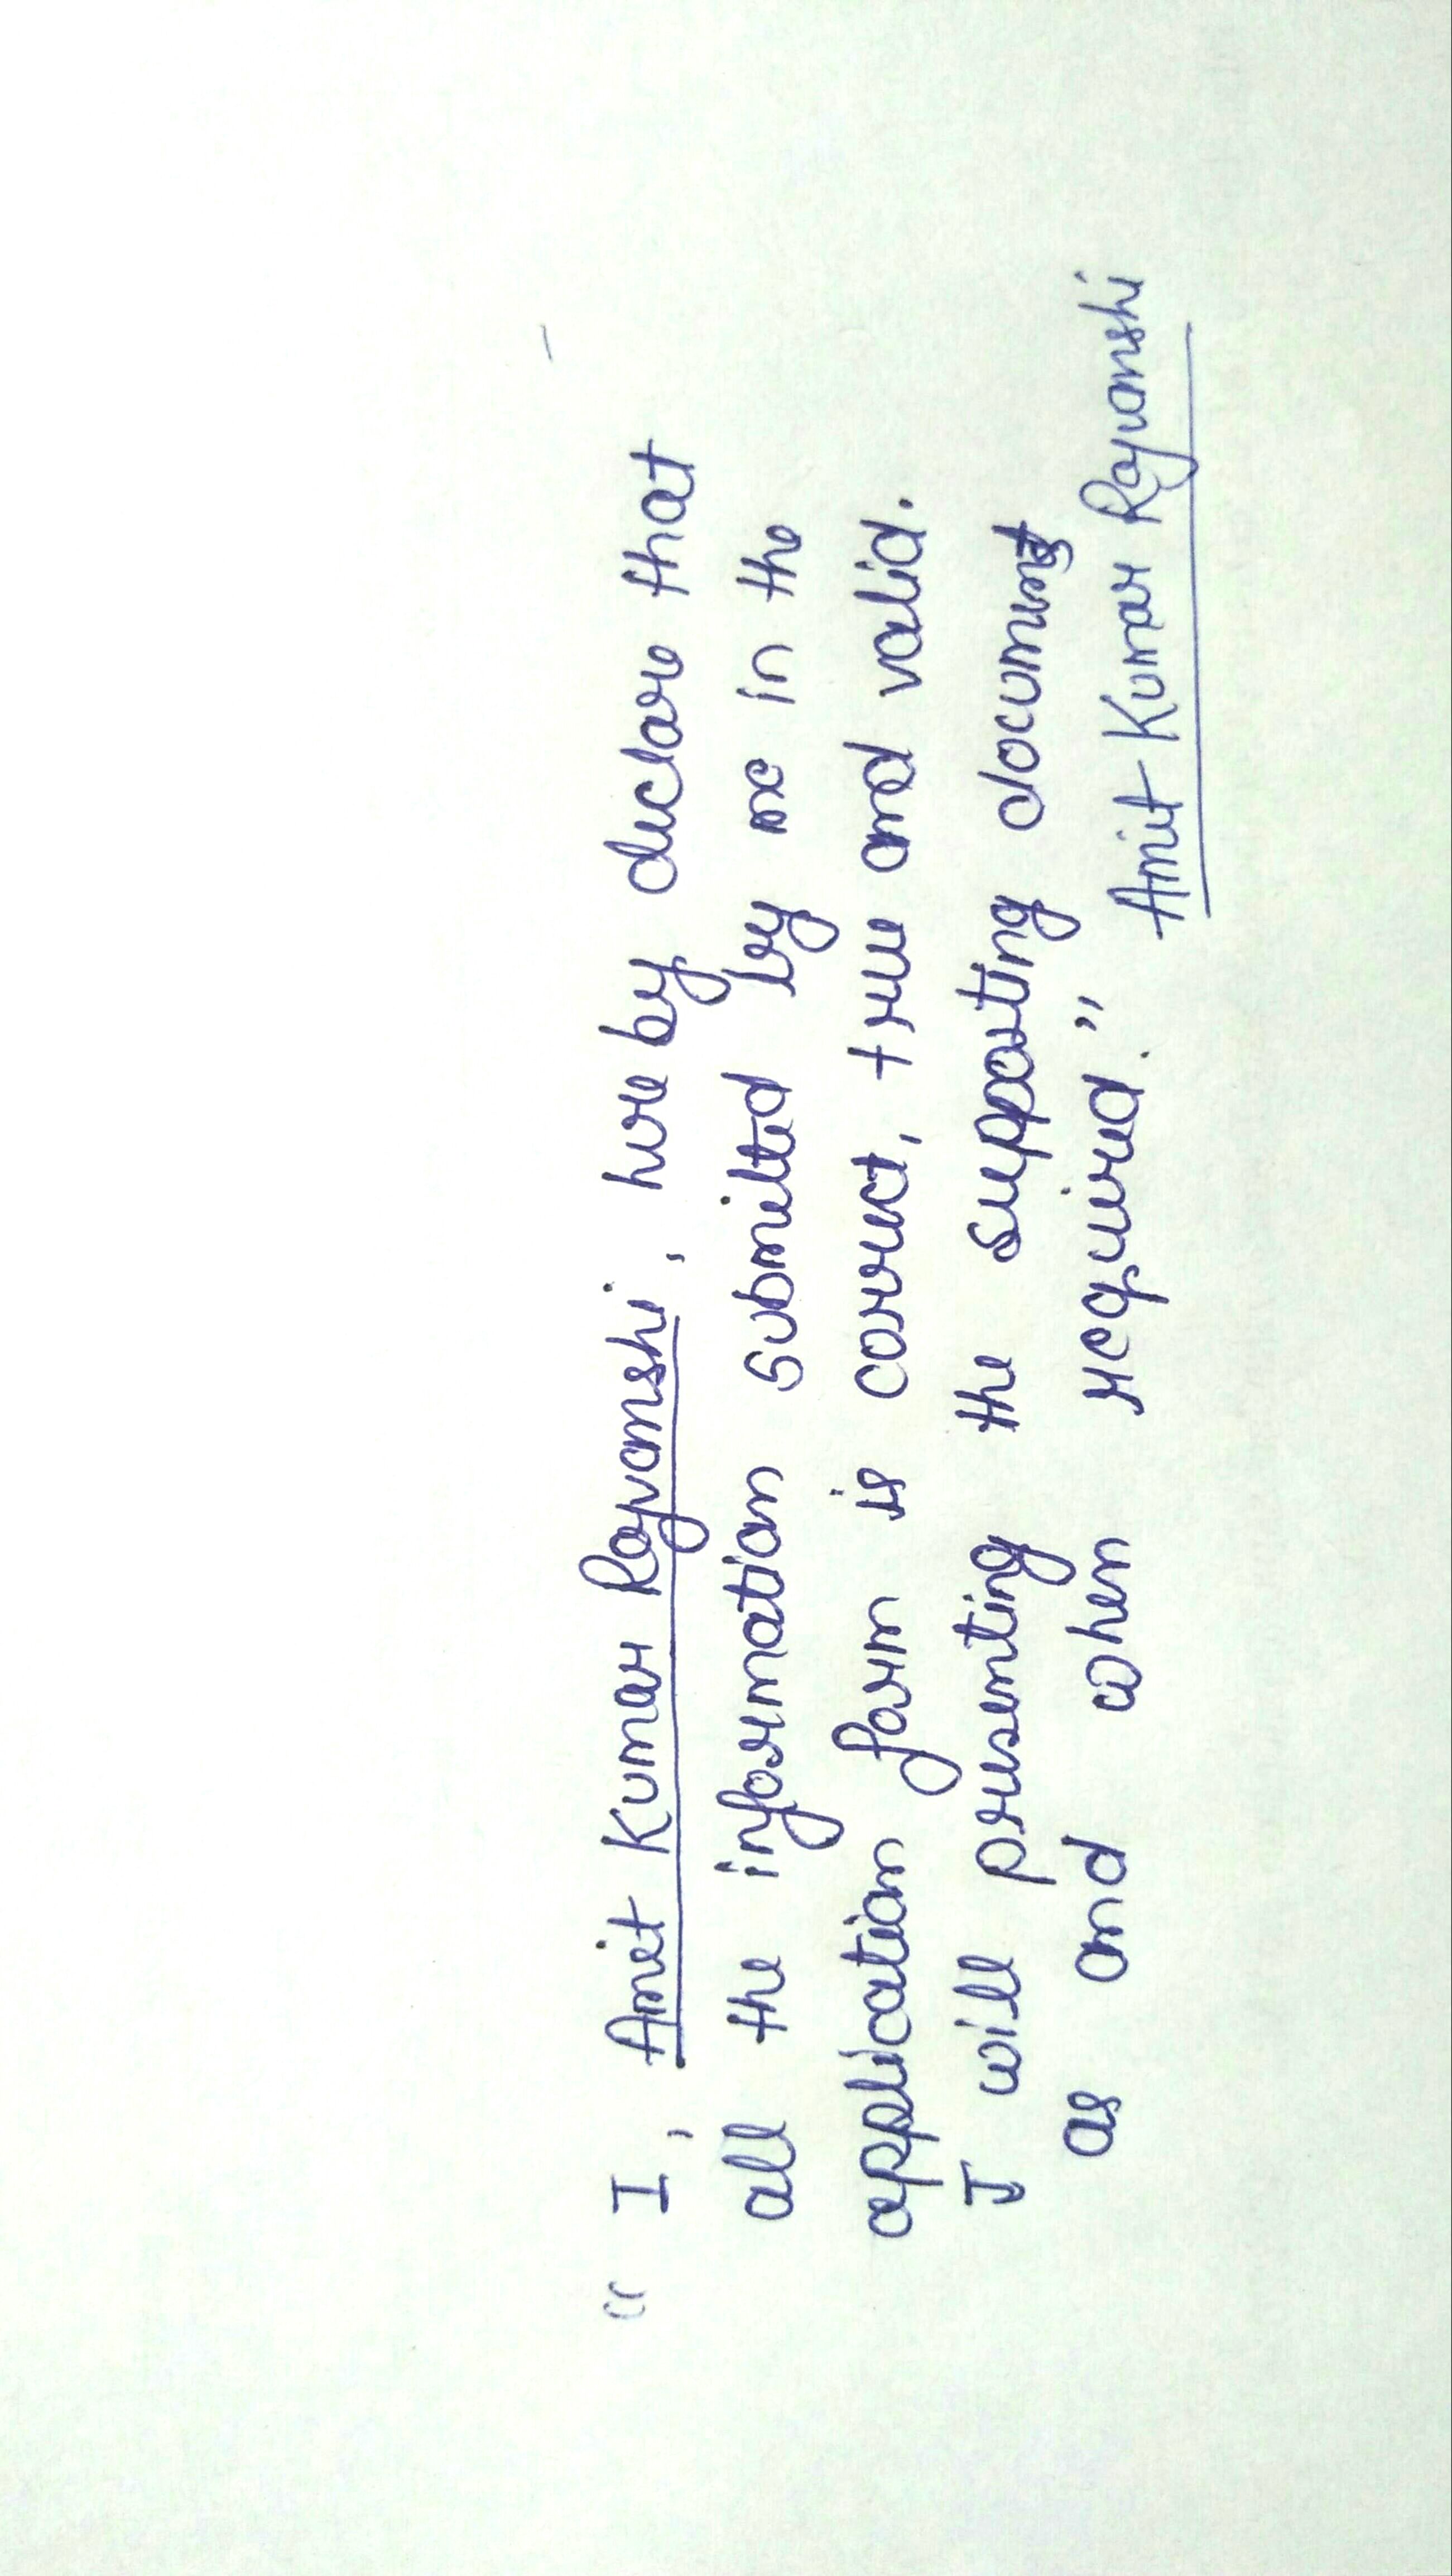 “ I, Amit Kumar Rajvanshi, here by declare that
all the information submitted by me in the
application form is correct, true and valid.
I will presenting the supporting documents
as and when required.”
Amit Kumar Rajvanshi